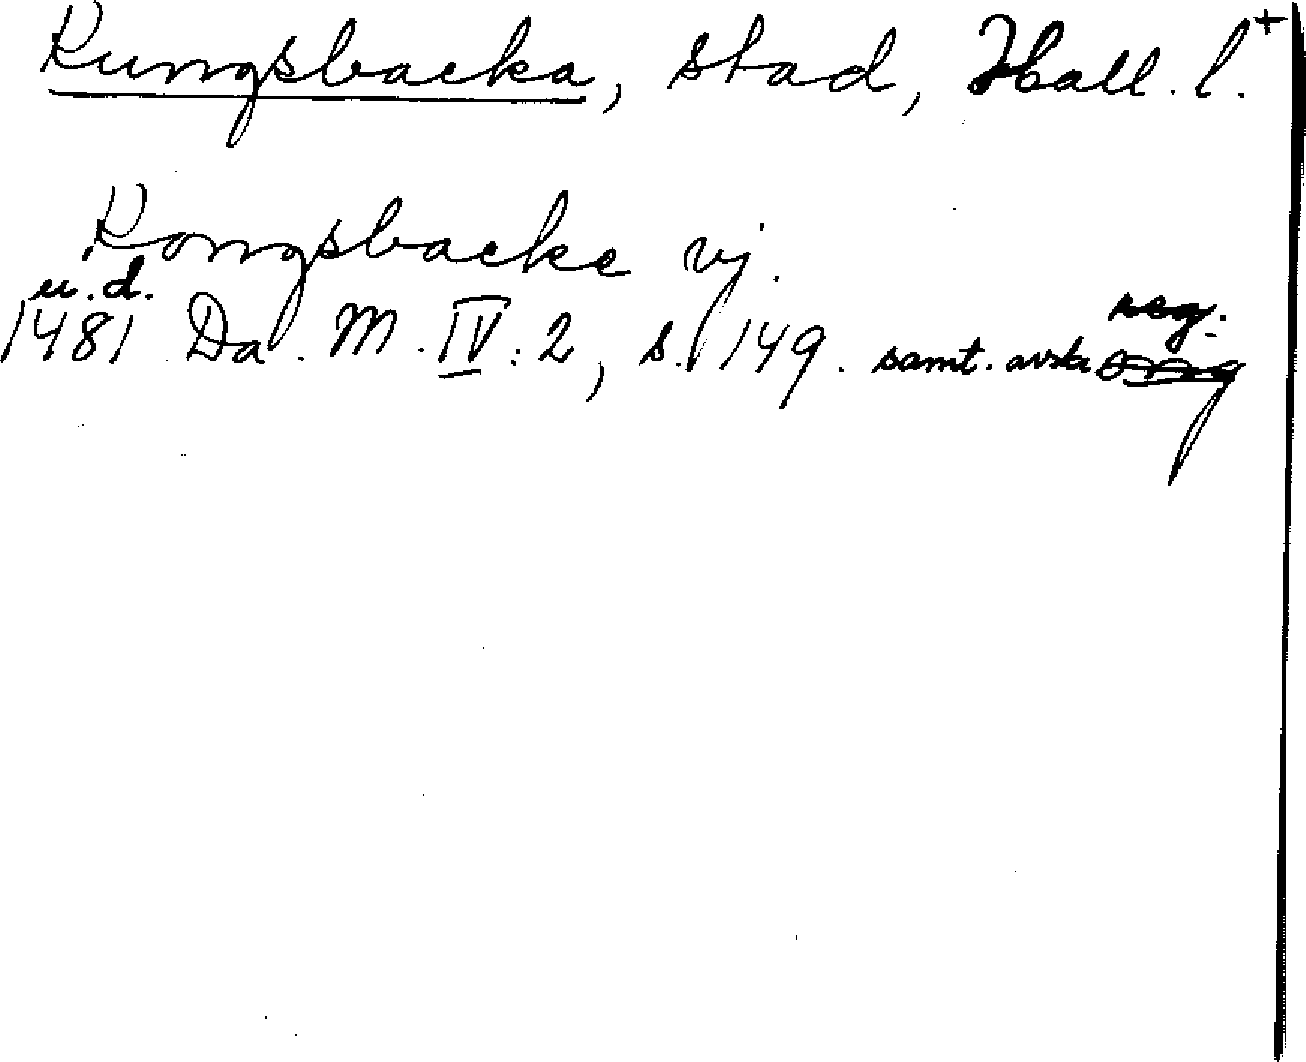 Kungsbacka, stad, Hall. l.+
Kongsbacke vj.
u.d.
1481 Da. M. IV: 2, s. 149. samt. avskr. reg.